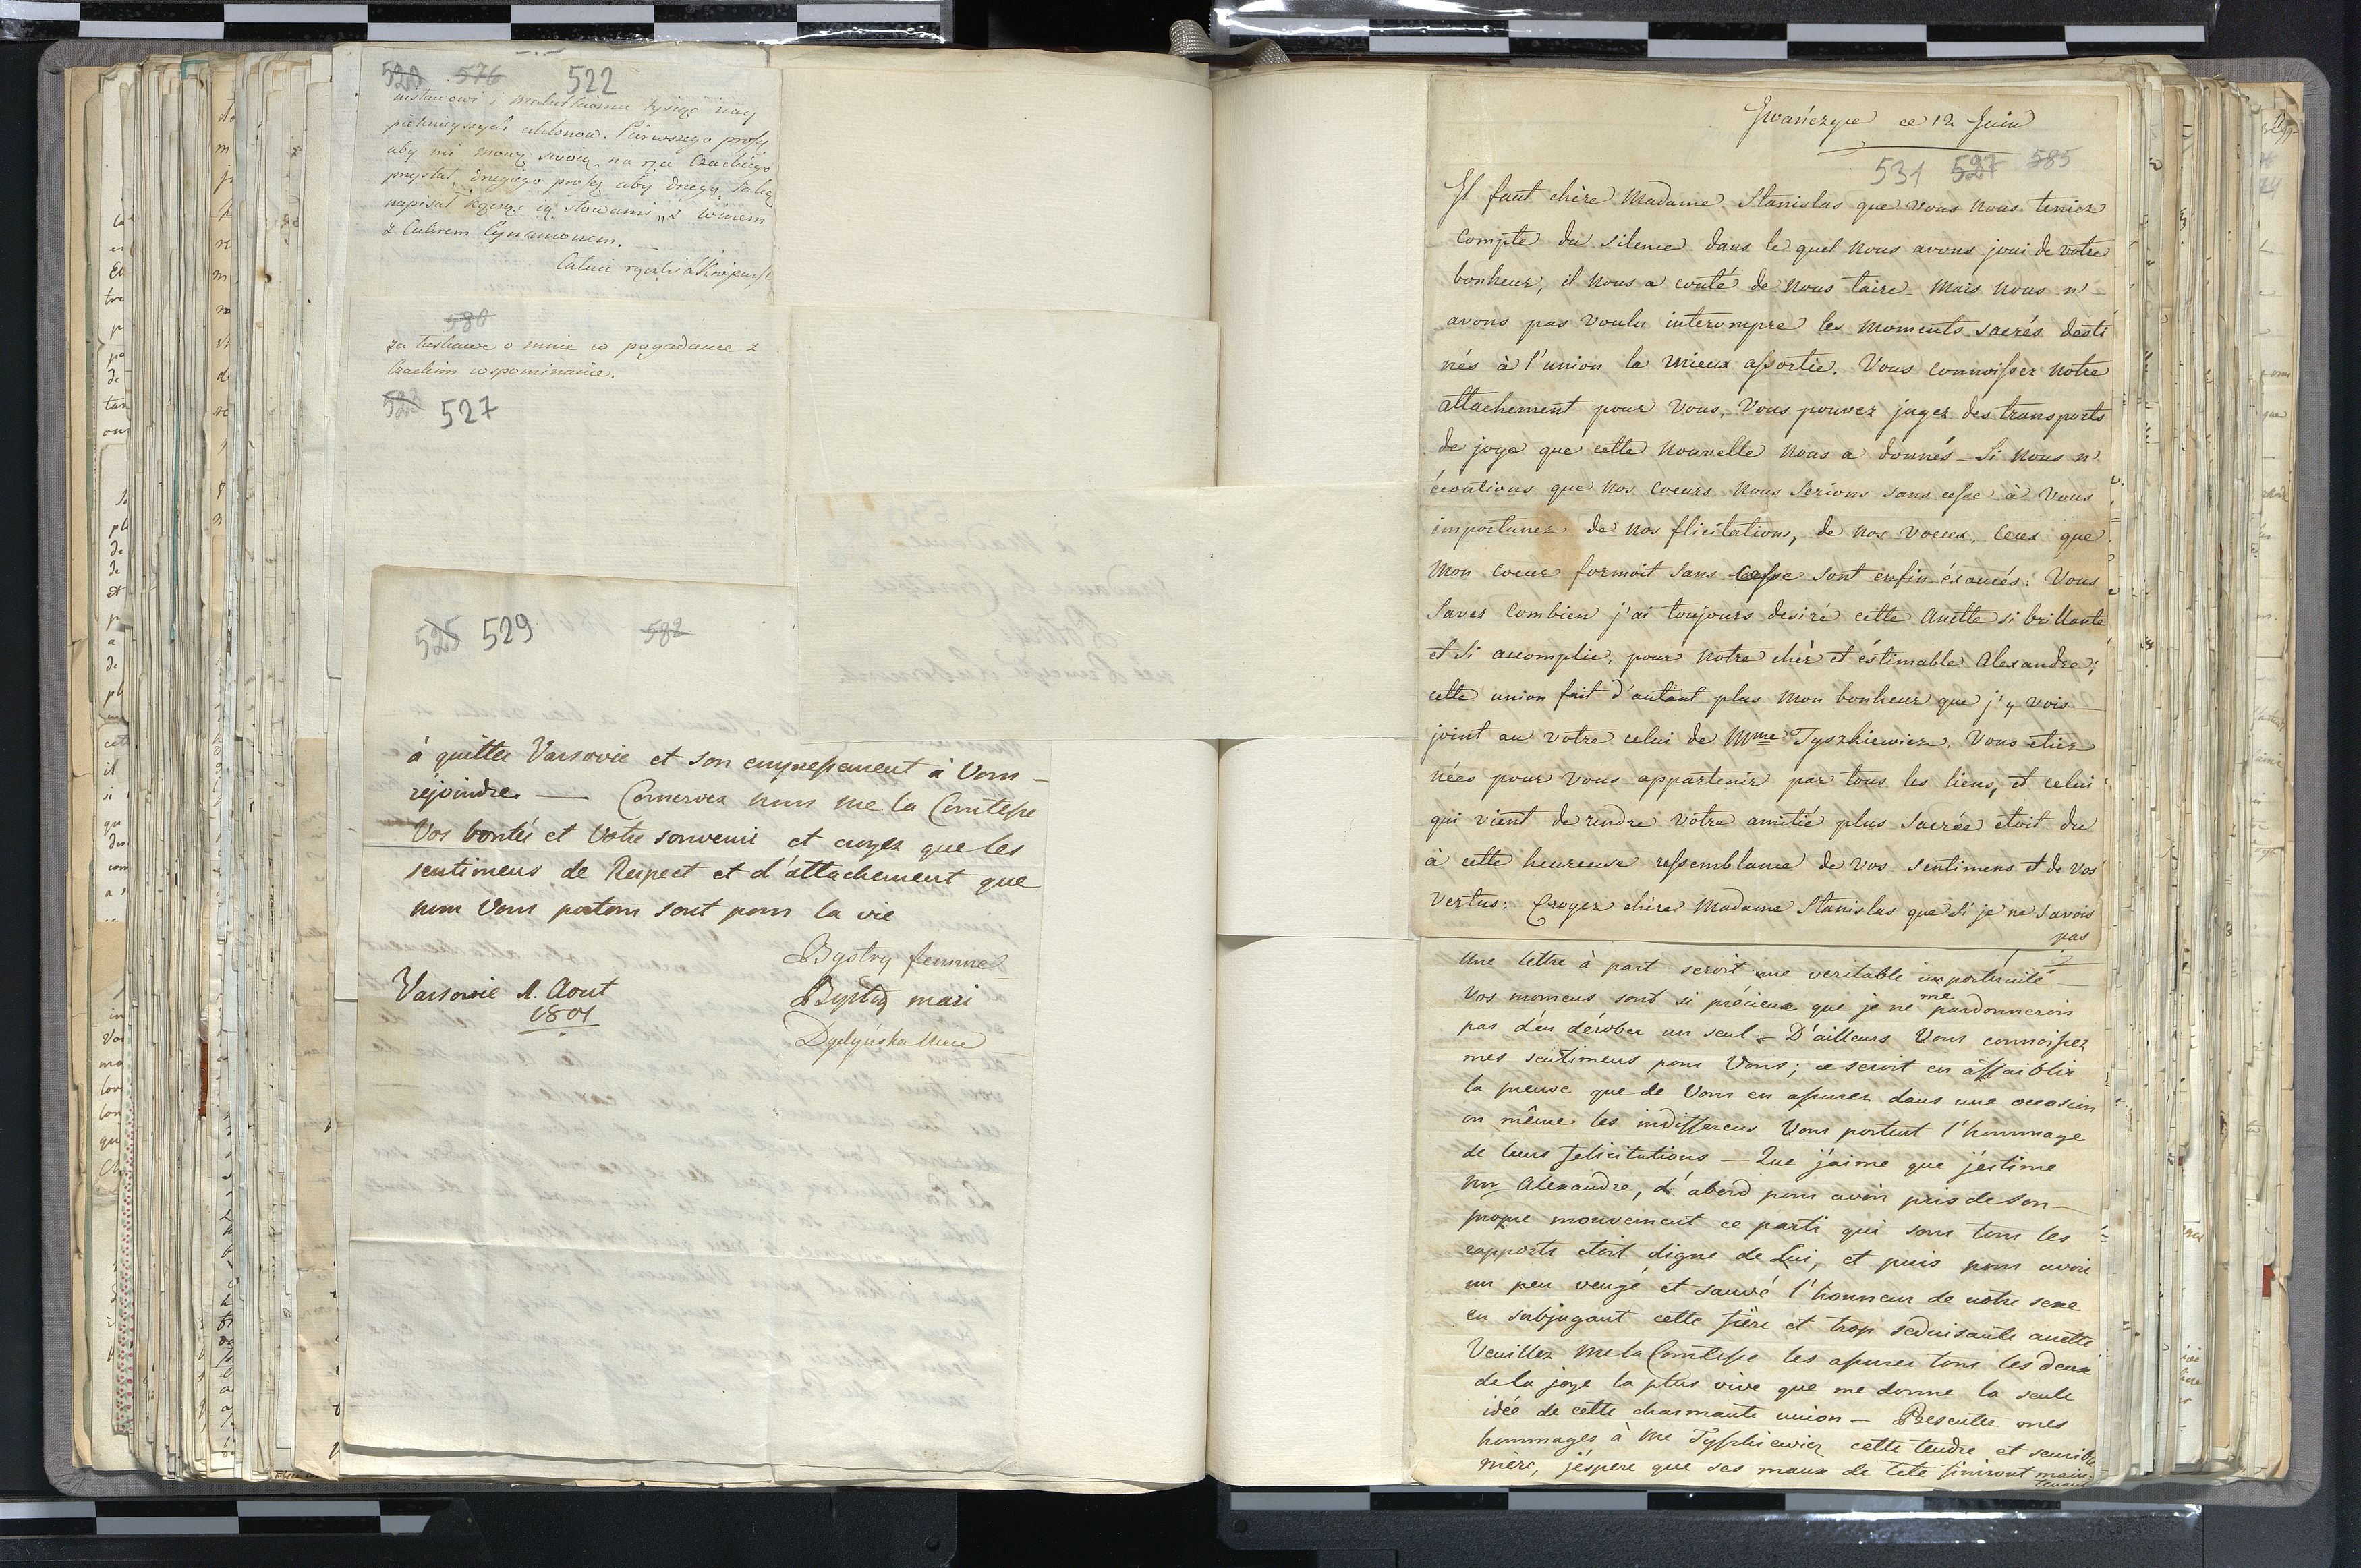 520 576 522
pięknieyszych ukłonow. Pierwszego proszę
aby mi mowę swoią na
przysłał, drugiego proszę aby drugą
napisał słowami „z winem
z Cukrem Cynamonem.
580
za łaskawe o mnie w pogadance z
Czackim wspominanie.
527
525 529 582
à quitter Varsovie et son empressement à Vous
réjoindre. — Conservez nous Me la Comtesse
Vos bontés et Votre souvenir et croyez que les
sentimens de Respect et d'attachement que
nous Vous portons sont pour la vie
Bystry femme
Varsovie 1. Aout
1801
Bystry mari
ce 12 Juin
531 527 585
Il faut chère Madame Stanislas que vous nous teniez
compte du silence dans le quel nous avons joui de votre
bonheur, il nous a couté de nous taire - mais nous n'
avons pas voulu interompre les moments sacrés desti
nés à l'union la mieux assortie. Vous connoissez notre
attachement pour vous, Vous pouvez juger des transports
de joye que cette nouvelle nous a donnés - Si nous n'
écoutions que nos coeurs nous serions sans cesse à vous
importuner de nos flicitations, de nos voeux, ceux que
mon coeur formoit sans cesse sont enfin éxaucés: Vous
savez combien j'ai toujours desiré cette Anette si brillante
et si accomplie, pour notre chèr et éstimable Alexandre;
cette union fait d'autant plus mon bonheur que j'y vois
joint au votre celui de Mme Tyszkiewicz. Vous etiez
nées pour vous appartenir par tous les liens, et celui
qui vient de rendre votre amitié plus sacrée etoit du
à cette heureuse ressemblance de vos sentimens et de vos
vertus: Croyez chère Madame Stanislas que si je ne savois
pas
Une lettre à part seroit une veritable importunité —
Vos momens sont si précieux que je ne me pardonnerois
pas d'en dérober un seul - D'ailleurs Vous connoissez
mes sentimens pour Vous; ce seroit en affaiblir
la preuve que de Vous en assurer dans une occasion
ou même les indifferens Vous portent l'hommage
de leurs felicitations — Que j'aime que j'estime
Mr Alexandre, d'abord pour avoir pris de son
propre mouvement ce parti qui sous tous les
rapports etoit digne de Lui, et puis pour avoir
un peu vengé et sauvé l'honneur de nôtre sexe
en subjugant cette fière et trop seduisante anette
Veuillez Me la Comtesse les assurer tous les deux
de la joye la plus vive que me donne la seule
idée de cette charmante union — Presenter mes
hommages à Me Tyszkiewicz cette tendre et sensible
mère, j'éspere que ses maux de tete finiront main-
tenant